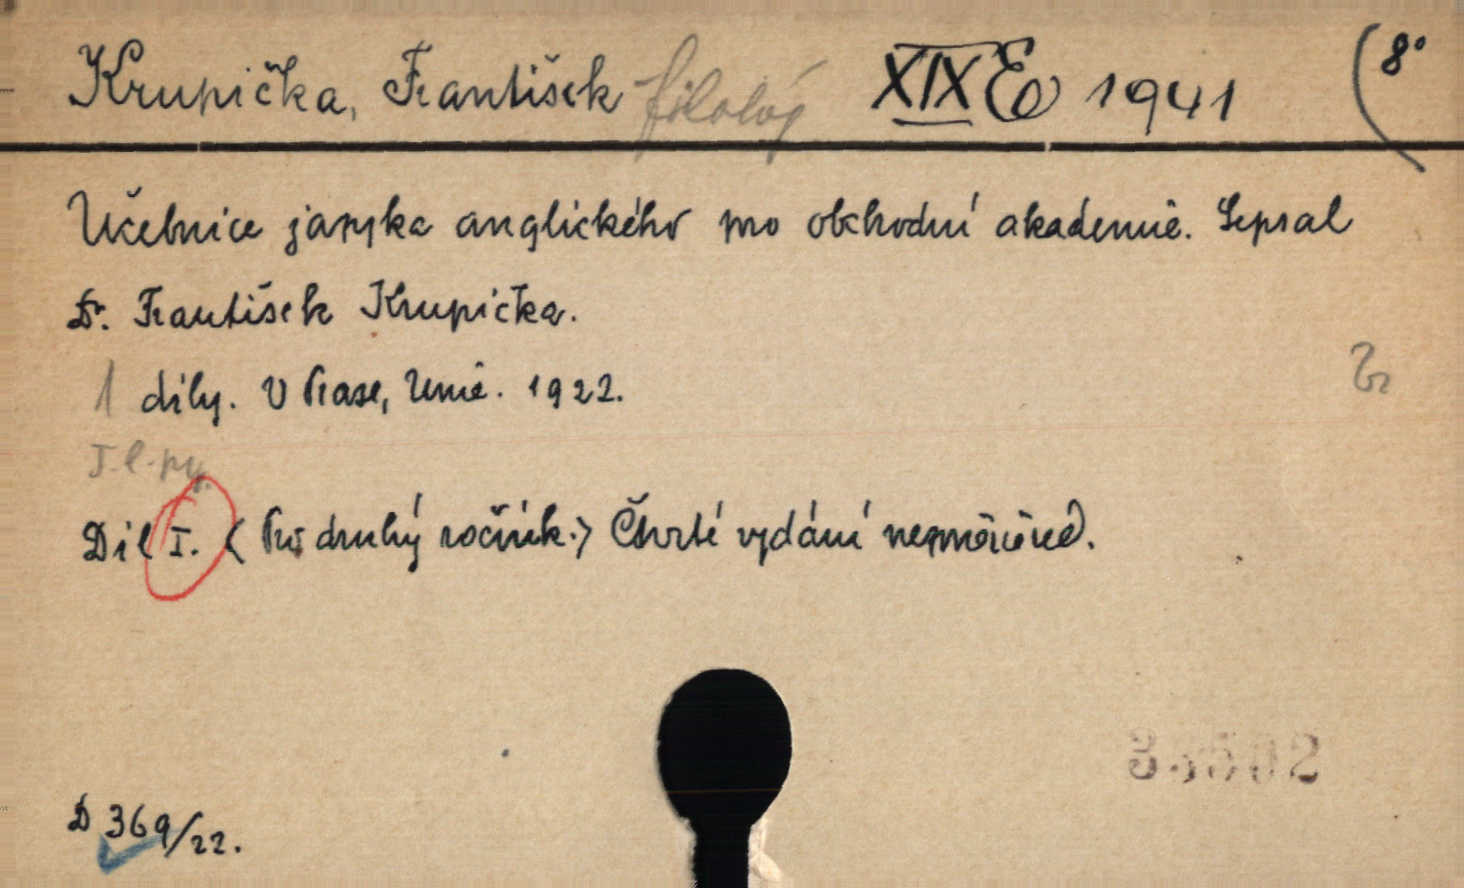 Krupička, František filolog XIX E 1941 (8°
Učebnice jazyka anglického pro obchodní akademie. Sepsal
Dr. František Krupička.
1 díly. V Praze, Unie. 1922.
Díl I. (Pro druhý ročník.) Čtvrté vydání nezměněné.
D 369/22.